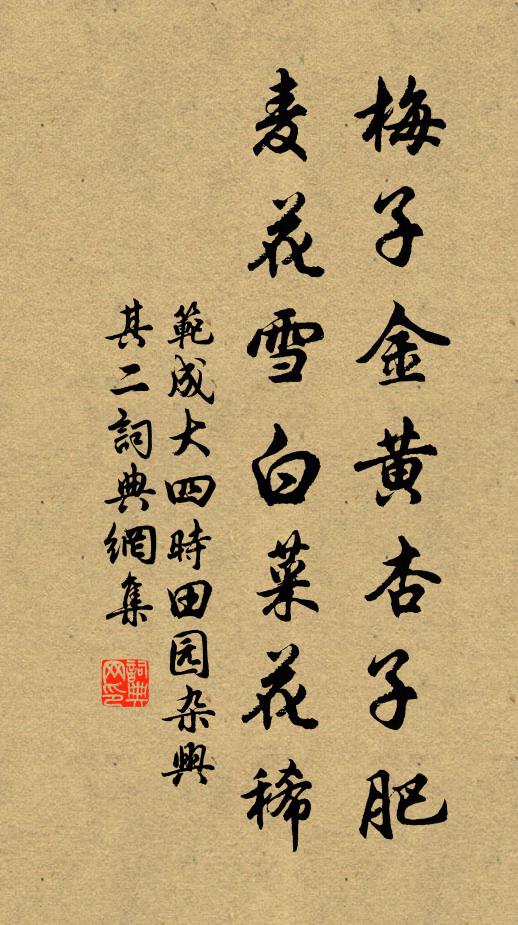 梅子金黄杏子肥
麦花雪白菜花稀
範成大四時田园杂興
其二詞典網集
詞典
网印